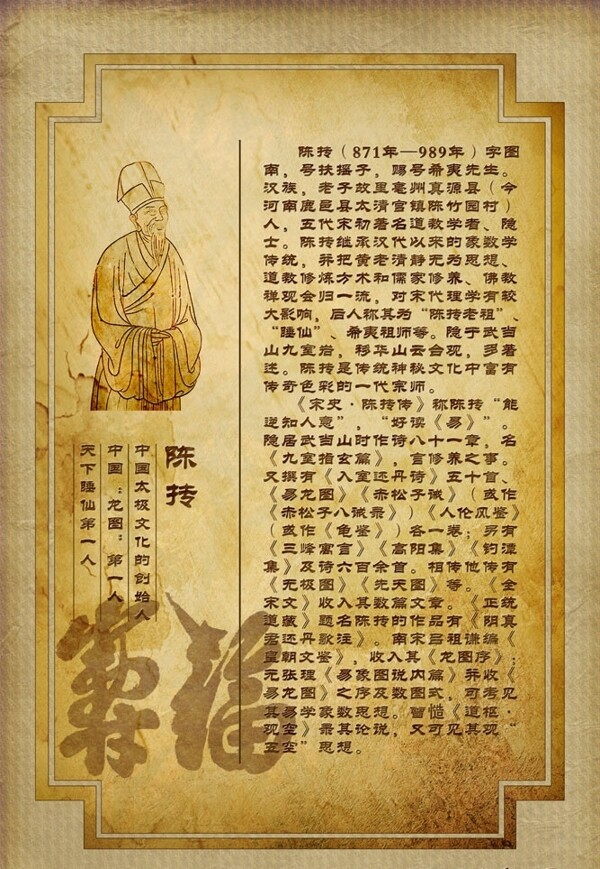 陈抟（871年—989年）字图
南，号扶摇子，赐号希夷先生。
汉族，老子故里亳州真源县（今
河南鹿邑县太清宫镇陈竹园村）
人，五代宋初著名道教学者、隐
士。陈抟继承汉代以来的象数学
传统，并把黄老清静无为思想、
道教修炼方术和儒家修养、佛教
禅观会归一流，对宋代理学有较
大影响，后人称其为“陈抟老祖”
、“睡仙”、希夷祖师等。隐于武当
山九室岩，移华山云台观，多著
述。陈抟是传统神秘文化中富有
传奇色彩的一代宗师。
《宋史·陈抟传》称陈抟“能
逆知人意”，“好读《易》”。
隐居武当山时作诗八十一章，名
《九室指玄篇》，言修养之事。
又撰有《入室还丹诗》五十首、
《易龙图》《赤松子诫》（或作
《赤松子八诫录》）《人伦风鉴》
（或作《龟鉴》）各一卷；另有
《三峰寓言》《高阳集》《钓潭
集》及诗六百余首。相传他传有
《无极图》《先天图》等。《全
宋文》收入其数篇文章。《正统
道藏》题名陈抟的作品有《阴真
君还丹歌注》。南宋吕祖谦编《
皇朝文鉴》，收入其《龙图序》；
元张理《易象图说内篇》并收《
易龙图》之序及数图式，可考见
其易学象数思想。曾慥《道枢·
观空》录其论说，又可见其观“
五空”思想。
陈抟
中国太极文化的创始人
中国：龙图：第一人
天下睡仙第一人
福
寿